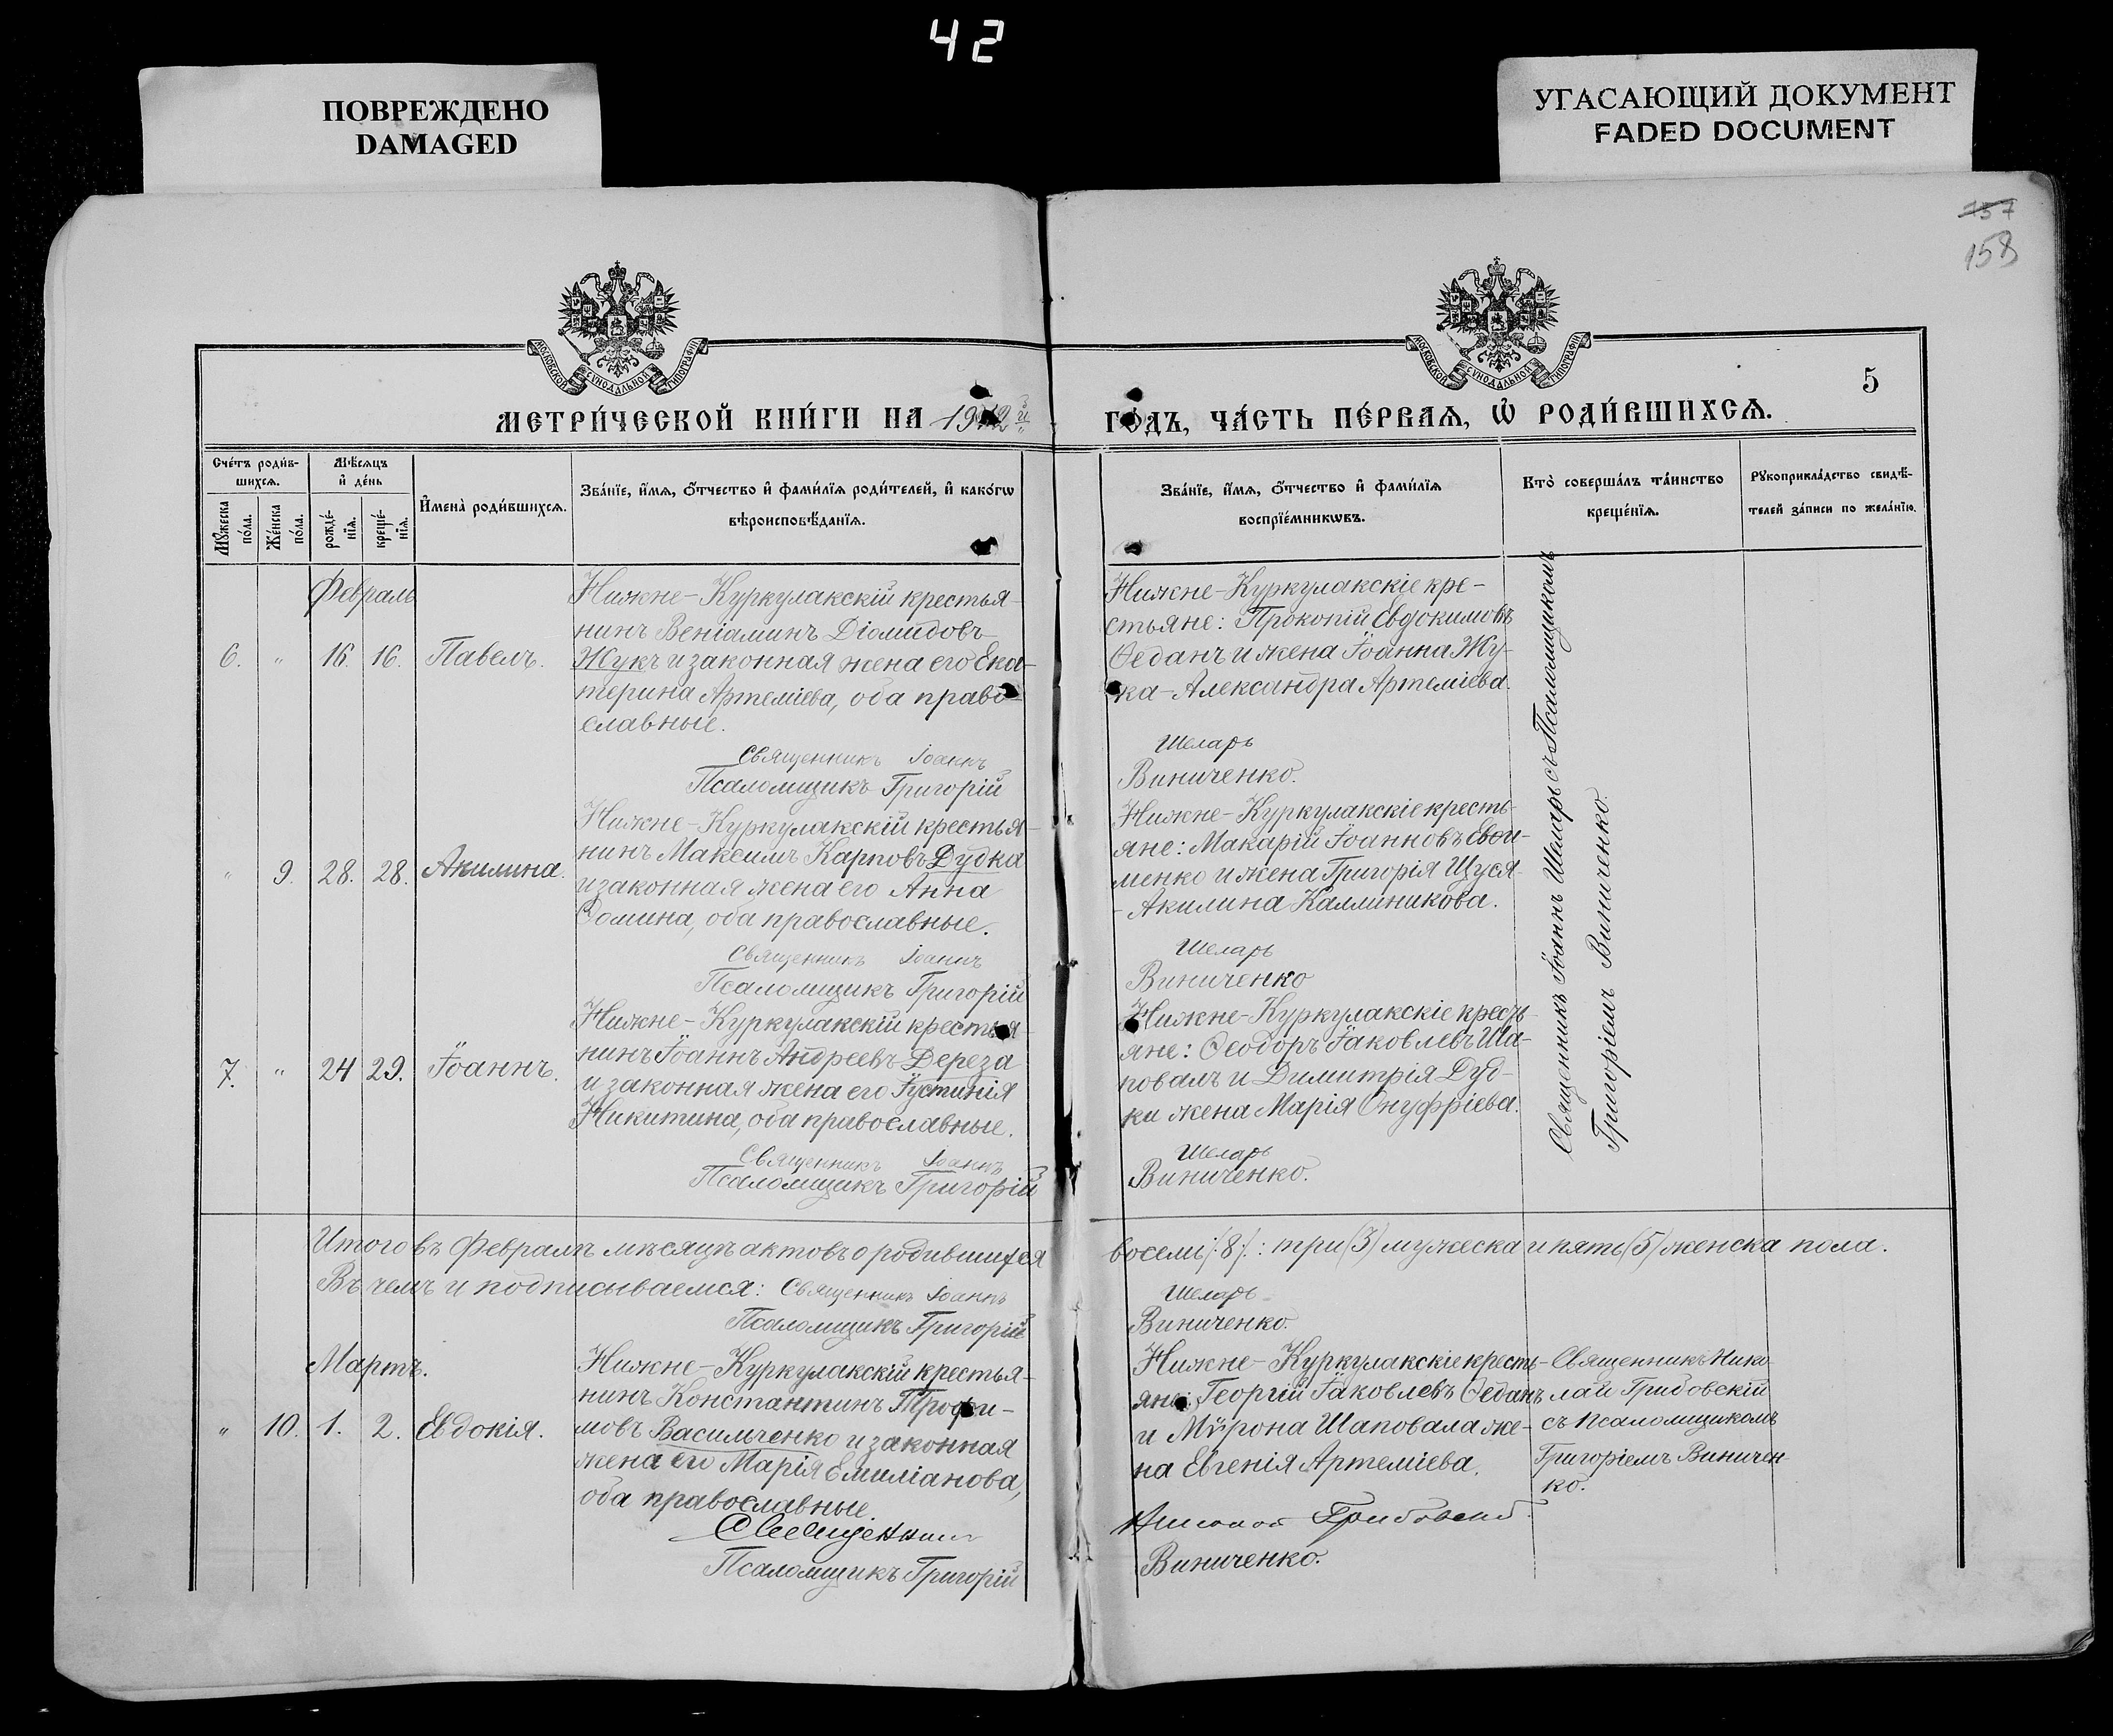 42
ПОВРЕЖДЕНО
DAMAGED
УГАСАЮЩИЙ ДОКУМЕНТ
FADED DOCUMENT
157
158
МОСКОВСКОЙ СѴНОДАЛЬНОЙ ТИПОГРАФІИ
МОСКОВСКОЙ СѴНОДАЛЬНОЙ ТИПОГРАФІИ
5
МЕТРИ́ЧЕСКОЙ КНИ́ГИ НА 1912й
ГО́ДЪ, ЧА́СТЬ ПЕ́РВАѦ, Ѡ҆ РОДИ́ВШИХСѦ.
Сче́тъ роди́в-
шихсѧ.
Мꙋ́жеска
по́ла.
Же́нска
по́ла.
Мѣ́сѧцъ
и҆ де́нь
рожде́-
нїѧ.
креще́-
нїѧ.
И҆мена̀ роди́вшихсѧ.
Зва́нїе, и҆́мѧ, ѻ҆́тчество и҆ фами́лїѧ роди́телей, и҆ како́гѡ
вѣроисповѣ́данїѧ.
Зва́нїе, и҆́мѧ, ѻ҆́тчество и҆ фами́лїѧ
воспрїе́мникѡвъ.
Кто̀ соверша́лъ та́инство
креще́нїѧ.
Рꙋкоприкла́дство свидѣ́-
телей за́писи по жела́нїю.
Февраль
6. " 16. 16. Павелъ.
Нижне-Куркулакскій крестья-
нинъ Веніаминъ Діомидовъ
Жукъ и законная жена его Ека-
терина Артеміева, оба право-
славные.
Священникъ Іоаннъ
Псаломщикъ Григорій
Нижне-Куркулакскіе кре-
стьяне: Прокопій Евдокимовъ
Ѳеданъ и жена Іоанна Жу-
ка-Александра Артеміева.
Шеларь
Виниченко.
" 9. 28. 28. Акилина.
Нижне-Куркулакскій крестья-
нинъ Максимъ Карповъ Дудка
и законная жена его Анна
Ѳомина, оба православные.
Священникъ Іоаннъ
Псаломщикъ Григорій
Нижне-Куркулакскіе кресть-
яне: Макарій Іоанновъ
менко и жена Григорія Щуся
-Акилина Каллиникова.
Шеларь
Виниченко
7. " 24 29. Іоаннъ.
Нижне-Куркулакскій крестья-
нинъ Іоаннъ Андреевъ Дереза
и законная жена его Іустинія
Никитина, оба православные.
Священникъ Іоаннъ
Псаломщикъ Григорій
Нижне-Куркулакскіе кресть-
яне: Ѳеодоръ Іаковлевъ Ша-
повалъ и Димитрія Дуд-
ки жена Марія Онуфріева.
Шеларь
Виниченко.
Священникъ Іоаннъ Шеларь съ Псаломщикомъ
Григоріемъ Виниченко.
Итого въ Февралѣ мѣсяцѣ актовъ о родившихся восемь /:8/.: три (3) мужеска и пять (5) женска пола.
Въ чемъ и подписываемся: Священникъ Іоаннъ Шеларь
Псаломщикъ Григорій Виниченко.
Мартъ.
" 10. 1. 2. Евдокія.
Нижне-Куркулакскій крестья-
нинъ Константинъ Трофи-
мовъ Васильченко и законная
жена его Марія Емиліанова,
оба православные.
Священникъ
Псаломщикъ Григорій
Нижне-Куркулакскіе кресть-
яне: Георгій Іаковлевъ Ѳеданъ
и Мѵрона Шаповала же-
на Евгенія Артеміева.
Николай Грибовскій.
Виниченко.
Священникъ Нико-
лай Грибовскій
съ псаломщикомъ
Григоріемъ Виничен-
ко.